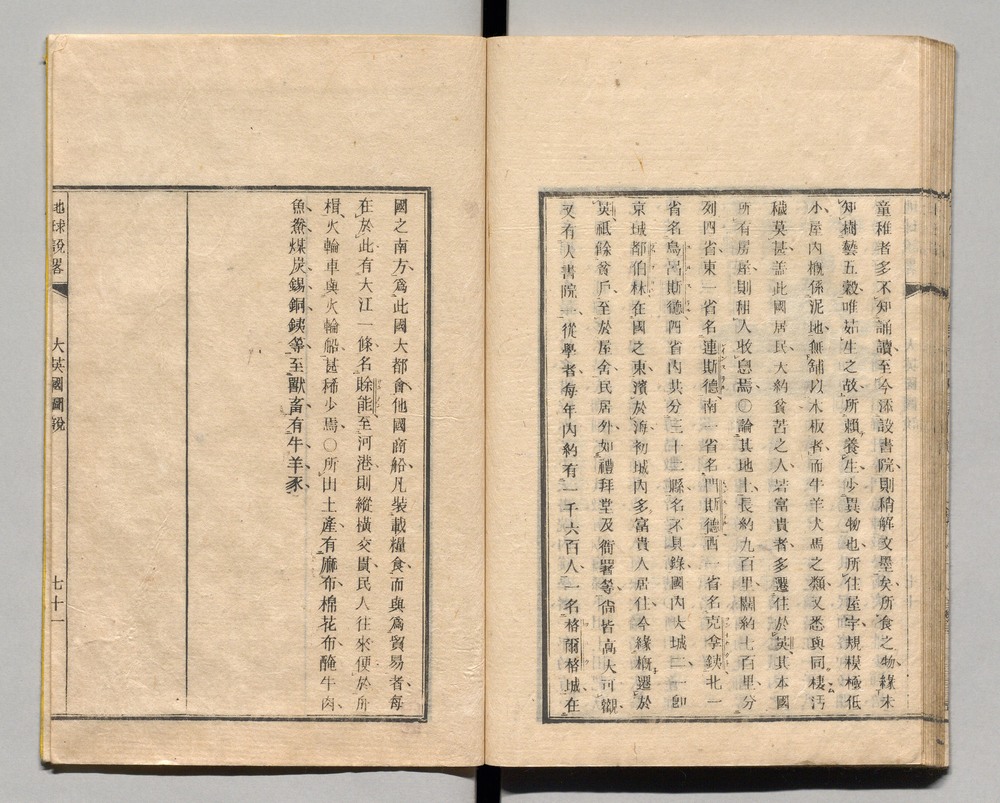 童稚者多不知誦讀至今添設書院則稍解文墨矣所食之物緣未
知樹藝五穀唯姑生之故所賴養生少異物也所住屋宇規模極低
小屋內概係泥地無舖以木板者而牛羊犬馬之類又悉與同棲汚
穢莫甚盖此國居民大約貧苦之人若富貴者多遷往於英其本國
所有房屋則租人收息焉〇論其地土長約九百里闊約七百里分
列四省東一省名連斯德南一省名門斯德西一省名克拿鐵北一
省名烏呂斯德四省內共分三十二縣名不具錄國內大城二一卽
京城都伯林在國之東濱於海初城內多富貴人居住今緣概遷於
英祇餘貧戶至於屋舍民居外如禮拜堂及衙署等尙皆高大可觀
又有大書院一從學者每年內約有一千六百人一名格爾格城在
國之南方爲此國大都會他國商船凡裝載糧食而與爲貿易者每
在於此有大江一條名賒能至河港則縱橫交貫民人往來便於舟
楫火輪車與火輪船甚稀少焉〇所出土產有麻布棉花布醃牛肉
魚鮝煤炭錫銅鐵等至獸畜有牛羊豕
地球說畧
大英國圖說
七十一